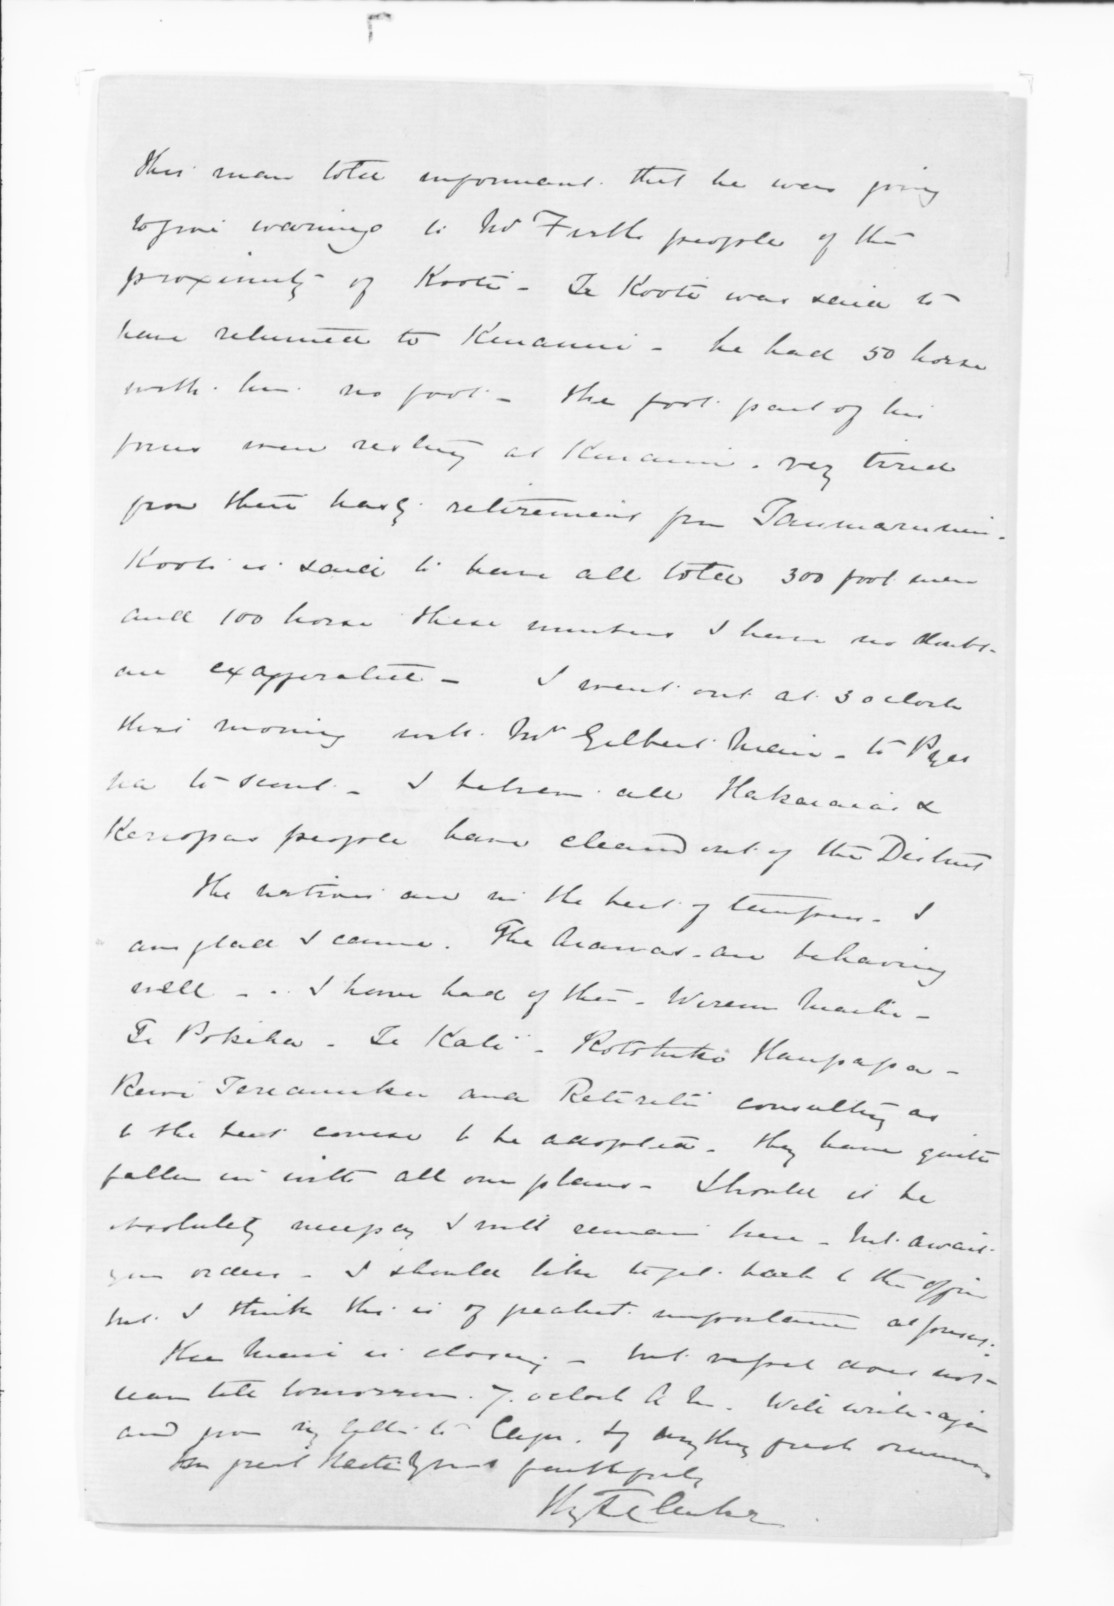 this man told informant that he was going
to give warning to Mr Firths people of the
proximity of Kooti - Te Kooti was said to
have returned to Kuranui - he had 50 horse
with him no foot - the foot part of his
force were resting at Kuranui. very tired
from their hasty retirement from Taumarunui.
Kooti is said to have all told 300 foot men
and 100 horse these numbers I have no doubt
are exaggerated - I went out at 3 oclock
this morning with Mr Gilbert Mair - to Pyes
Pa to scout - I believe all Hakaraias &
Kereopas people have cleared out of the District
The natives are in the best of tempers - I
am glad I came. The Arawas are behaving
well - - I have had of them - Wiremu
Te Pokiha - Te Kati - Rotohiko Haupapa -
Rewi Tereanuku and Retireti consulting as
to the best course to be adopted - they have quite
fallen in with all our plans - Should it be
absolutely necessary I will remain here - but await
your orders - I should like to get back to the office
but I think this is of greatest importance at present.
The Mail is closing - but vessel does not
leave till tomorrow 7. oclock A M. Will write again
and give my letter to if anything fresh occurs
In great haste Yours faithfully
Hy T Clarke